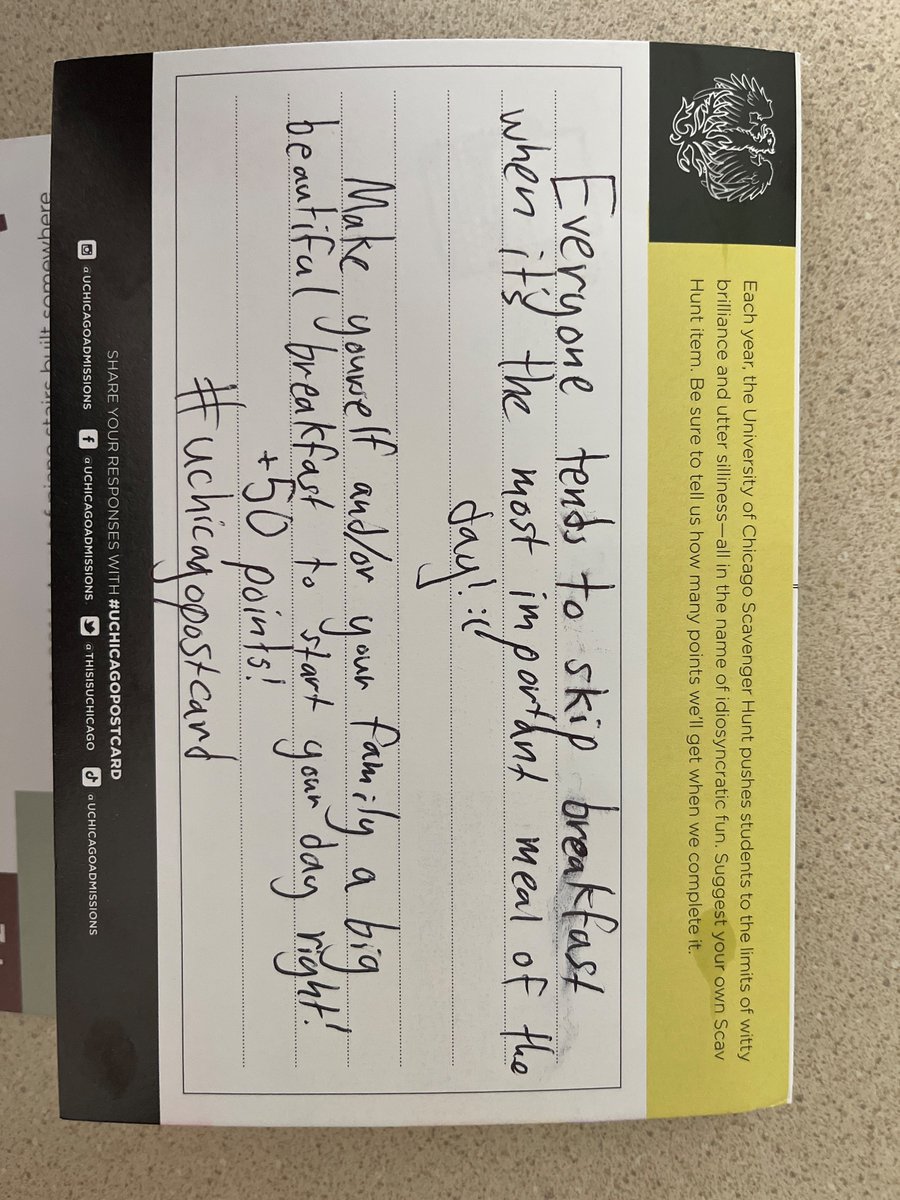 Each year, the University of Chicago Scavenger Hunt pushes students to the limits of witty
brilliance and utter silliness—all in the name of idiosyncratic fun. Suggest your own Scav
Hunt item. Be sure to tell us how many points we'll get when we complete it.
Everyone tends to skip breakfast
when it's the most important meal of the
day! :(
Make yourself and/or your family a big
beautiful breakfast to start your day right!
+50 points!
#uchicagopostcard
SHARE YOUR RESPONSES WITH #UCHICAGOPOSTCARD
@UCHICAGOADMISSIONS @UCHICAGOADMISSIONS @THISISUCHICAGO @UCHICAGOADMISSIONS